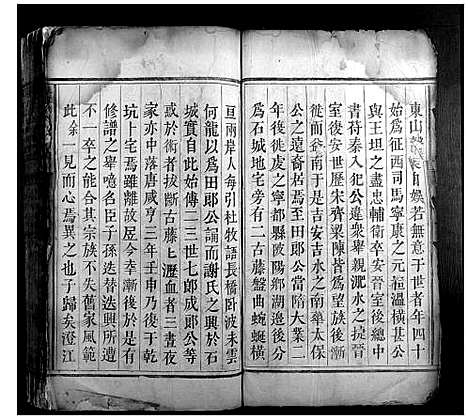 東山 自娛若無意于世者年四十
始爲征西司馬寧康之元桓溫横甚公
與王坦之盡忠輔衛卒安晉室後總
書符秦入犯公違衆舉親淝水之捷晉
室復安世歷宋齊梁陳皆爲望族後漸
徙而 于是吉安吉水之南華太保
公之遠裔居焉至田郎公當隋大業二
年後徙虔之寧都縣陂陽鄉湖漕遂名
爲石城地宅旁有二古藤盤曲蜿蜒橫
亘兩岸人每引杜牧語長橋卧波未雲
何龍以爲田郎公誦而謝氏之興於石
城實自此始傳二三世七郎成郎公等
或於術者拔斷古藤 瀝血者三晝夜
家亦中落唐咸亨三年壬申乃復于乾
坑卜宅焉雖離故居今幸漸後於是有
修譜之舉噫名臣子孫迭替法興所遭
不一卒之能合其宗族不失舊家風範
此余一見而心焉異之也子歸矣澄江